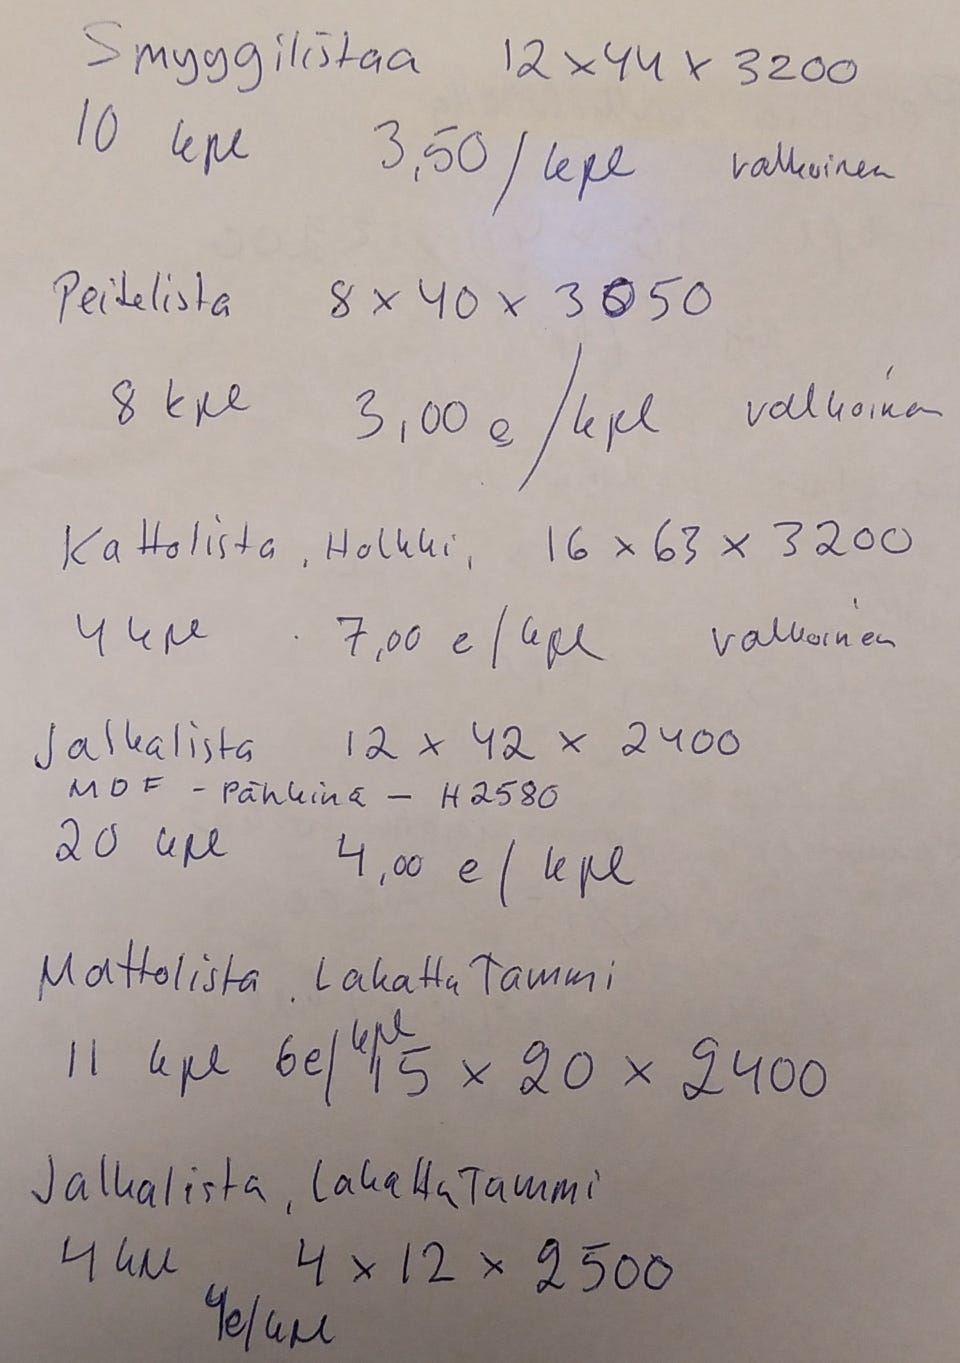 Smyygilistaa 12 x 44 x 3200
10 kpl 3,50 / kpl valkoinen
Peitelista 8 x 40 x 3050
8 kpl 3,00 e / kpl valkoinen
Kattolista, Holkki, 16 x 63 x 3200
4 kpl 7,00 e / kpl valkoinen
Jalkalista 12 x 42 x 2400
MDF - Pähkinä - H2580
20 kpl 4,00 e / kpl
Mattolista, Lakattu Tammi
11 kpl 6e/kpl 15 x 20 x 2400
Jalkalista, Lakattu Tammi
4 kpl 4 x 12 x 2500
4e/kpl